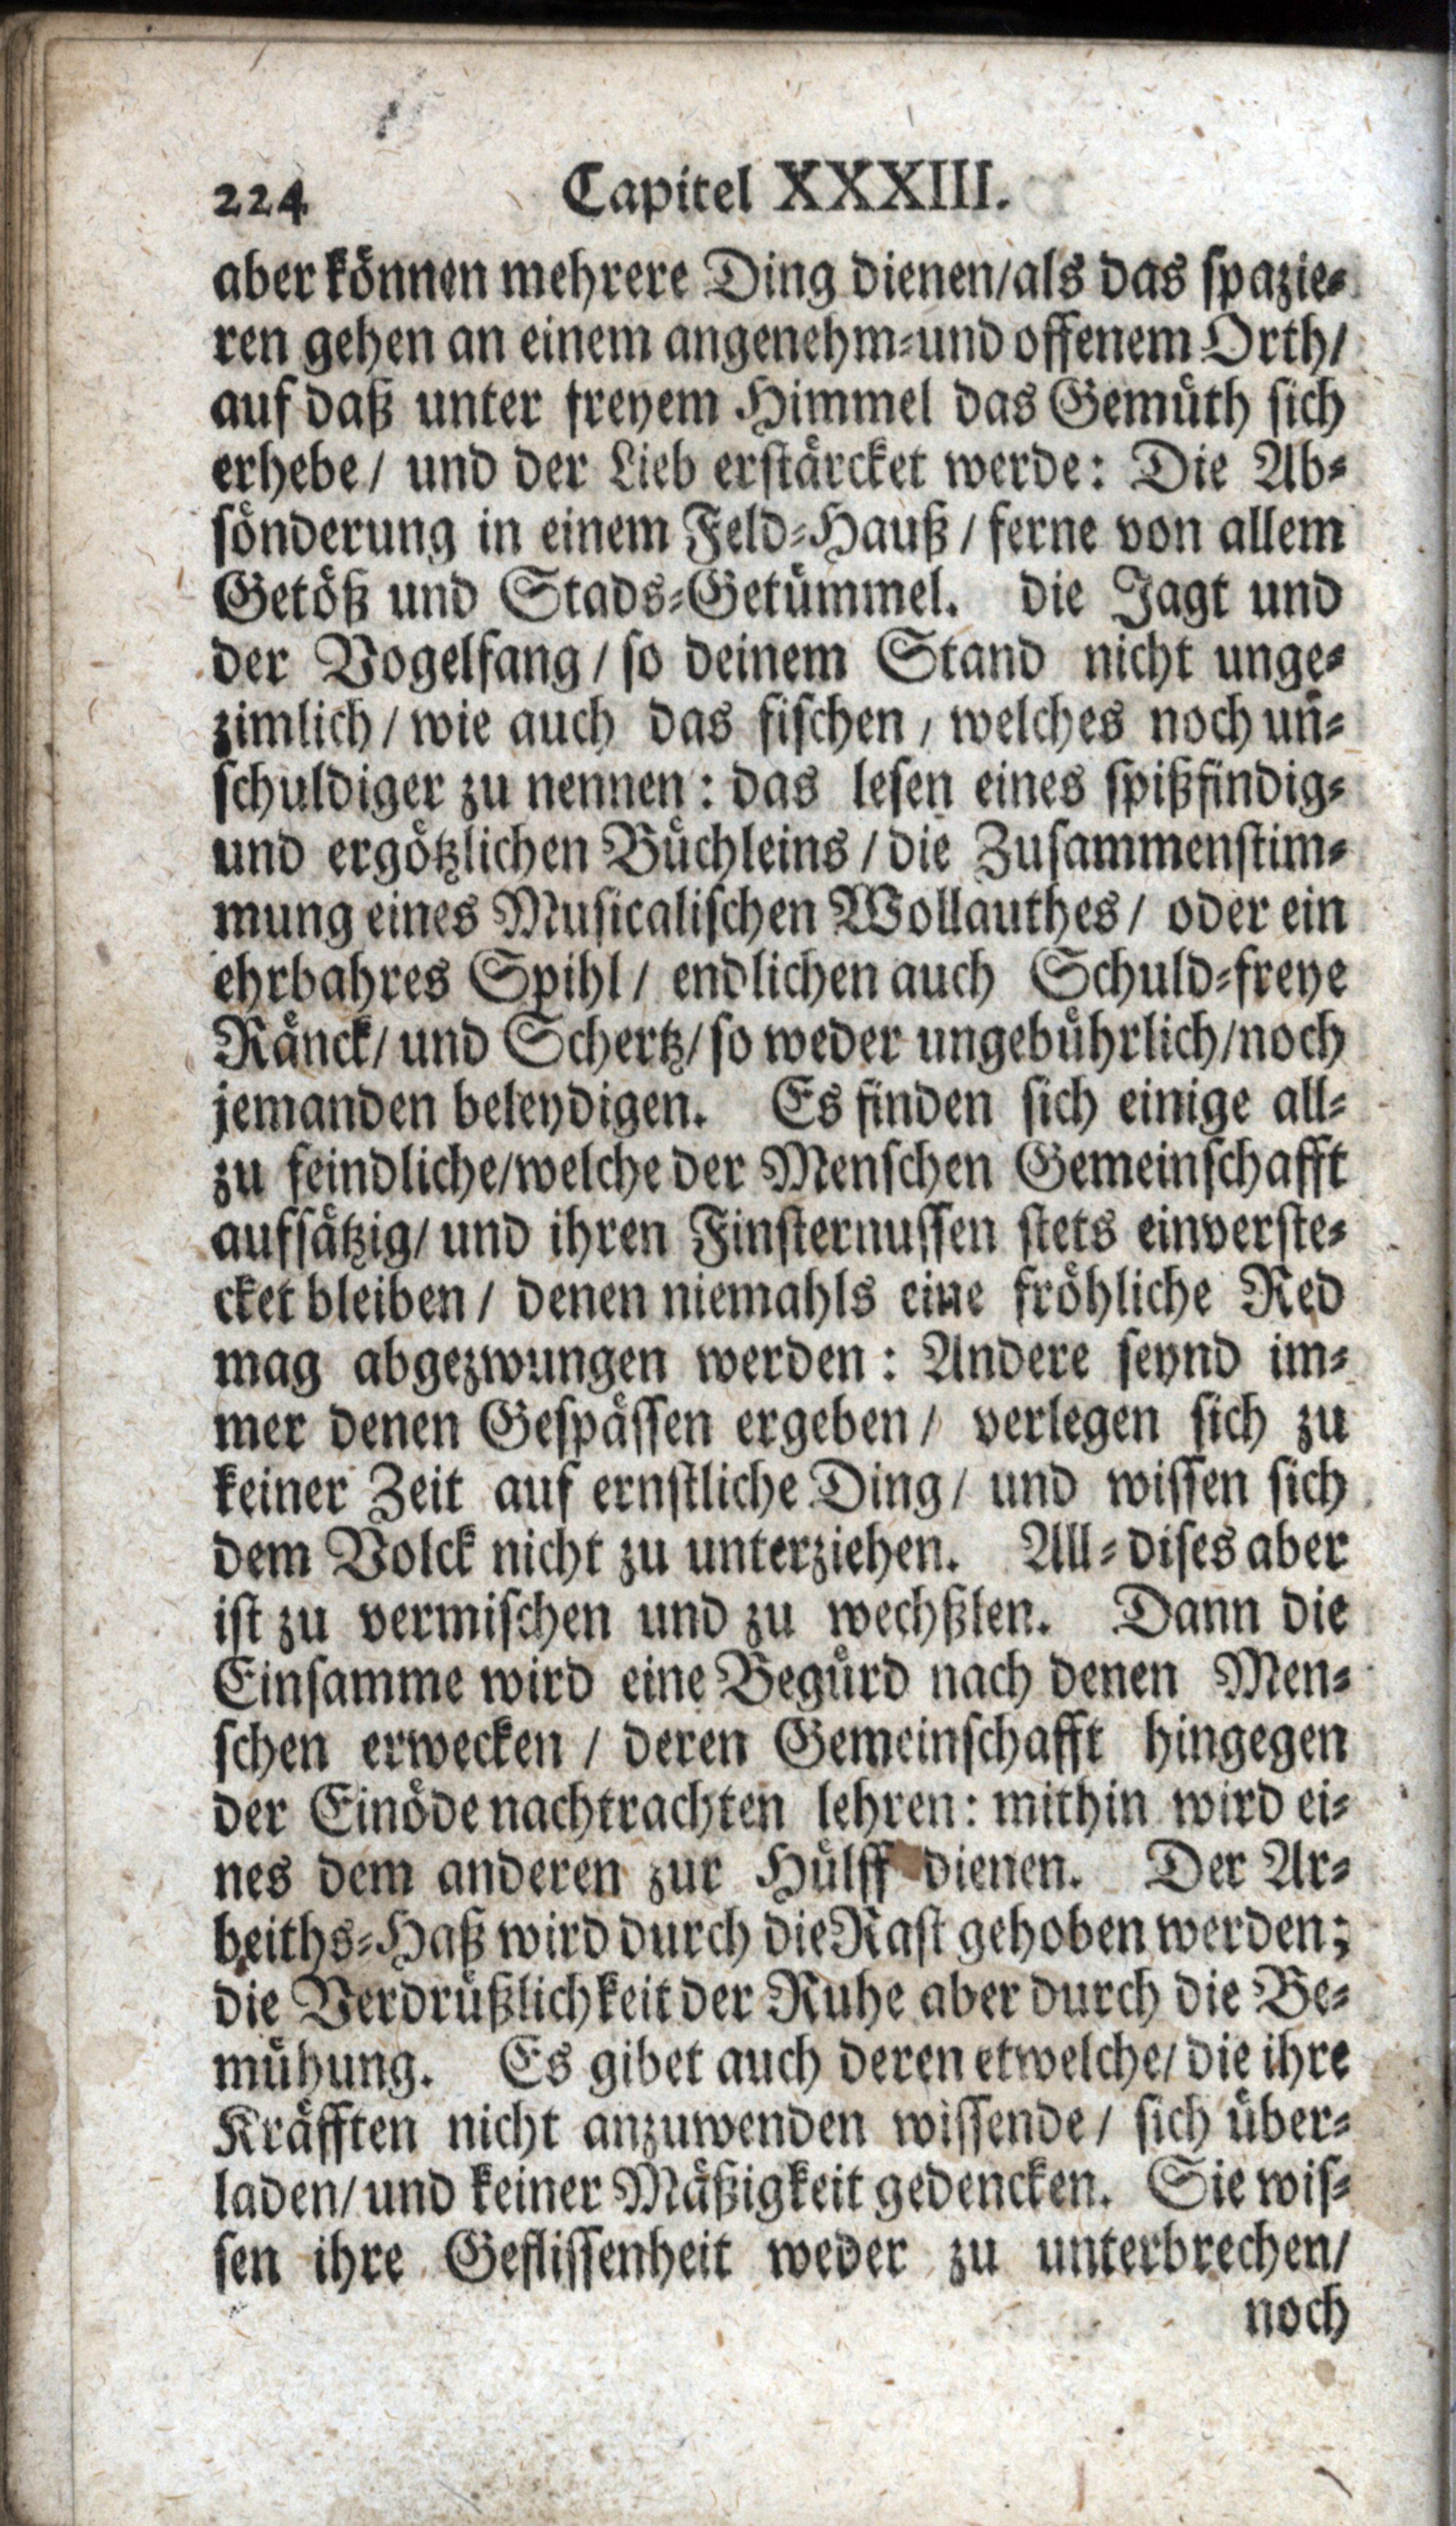 224 Capitel XXXIII.
aber können mehrere Ding dienen/als das spazie⸗
ren gehen an einem angenehm⸗und offenem Orth/
auf daß unter freyem Himmel das Gemüth sich
erhebe/ und der Lieb erstärcket werde: Die Ab⸗
sönderung in einem Feld⸗Hauß/ ferne von allem
Getöß und Stads⸗Getümmel. die Jagt und
der Vogelfang/ so deinem Stand nicht unge⸗
zimlich/ wie auch das fischen, welches noch un⸗
schuldiger zu nennen: das lesen eines spißfindig⸗
und ergötzlichen Büchleins/ die Zusammenstim⸗
mung eines Musicalischen Wollauthes/ oder ein
ehrbahres Spihl/ endlichen auch Schuld⸗freye
Ränck/ und Schertz/ so weder ungebührlich/noch
jemanden beleydigen. Es finden sich einige all⸗
zu feindliche/welche der Menschen Gemeinschafft
aufsätzig/ und ihren Finsternussen stets einverste⸗
cket bleiben/ denen niemahls eine fröhliche Red
mag abgezwungen werden: Andere seynd im⸗
mer denen Gespässen ergeben/ verlegen sich zu
keiner Zeit auf ernstliche Ding/ und wissen sich
dem Volck nicht zu unterziehen. All⸗dises aber
ist zu vermischen und zu wechßlen. Dann die
Einsamme wird eine Begürd nach denen Men⸗
schen erwecken/ deren Gemeinschafft hingegen
der Einöde nachtrachten lehren: mithin wird ei⸗
nes dem anderen zur Hülff dienen. Der Ar⸗
beiths⸗Haß wird durch die Rast gehoben werden;
die Verdrüßlichkeit der Ruhe aber durch die Be⸗
mühung. Es gibet auch deren etwelche/ die ihre
Kräfften nicht anzuwenden wissende/ sich über⸗
laden/ und keiner Mäßigkeit gedencken. Sie wis⸗
sen ihre Geflissenheit weder zu unterbrechen/
noch